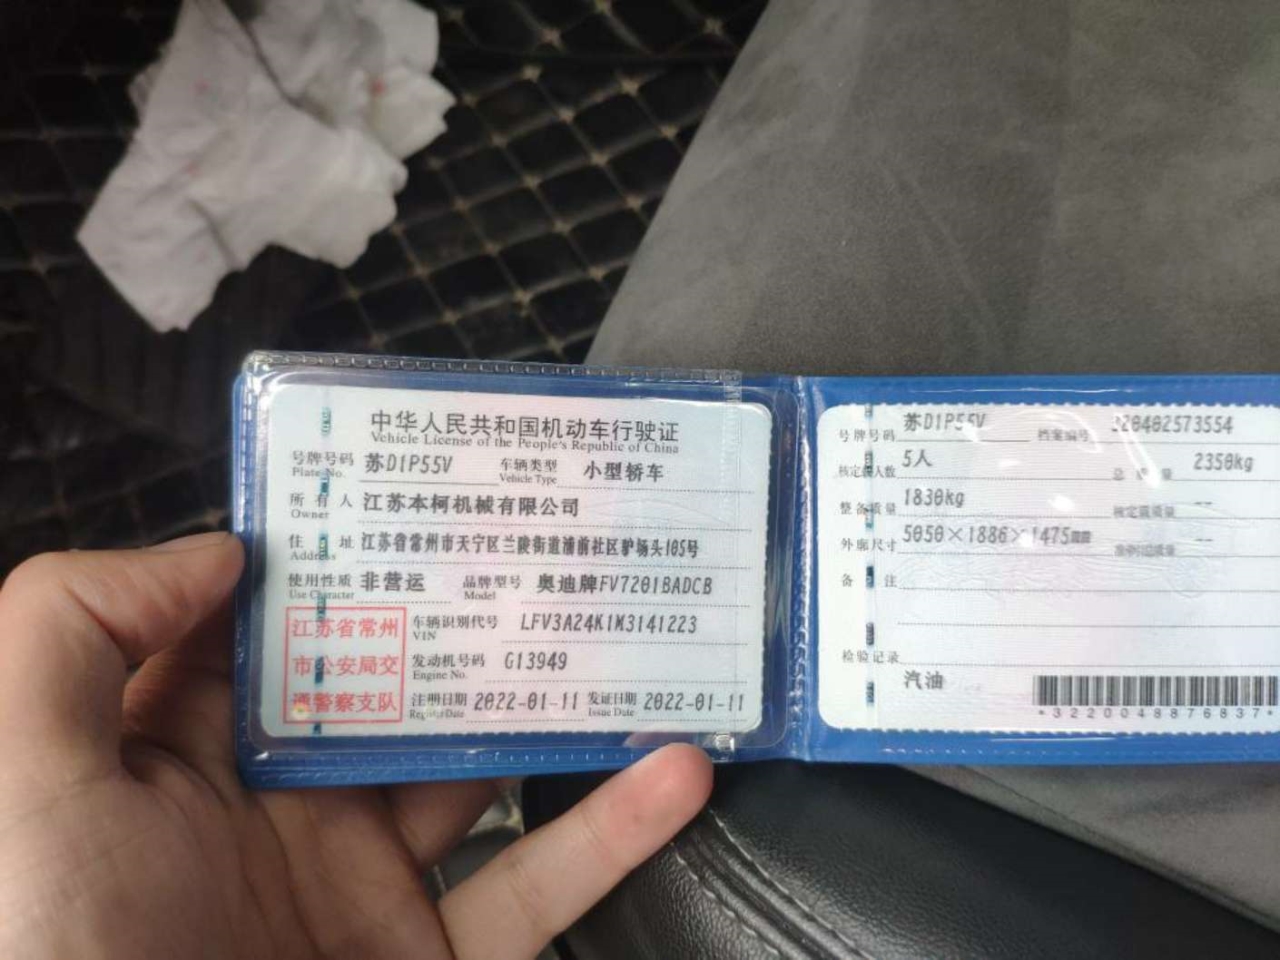 中华人民共和国机动车行驶证
Vehicle License of the People's Republic of China
号牌号码 苏D1P55V 车辆类型 小型轿车
Plate No. Vehicle Type
所有人 江苏本柯机械有限公司
Owner
住址 江苏省常州市天宁区兰陵街道浦前社区驴场头105号
Address
使用性质 非营运 品牌型号 奥迪牌FV7201BADCB
Use Character Model
江苏省常州
市公安局交
通警察支队
车辆识别代号 LFV3A24K1M3141223
VIN
发动机号码 G13949
Engine No.
注册日期 2022-01-11 发证日期 2022-01-11
Register Date Issue Date
号牌号码 苏D1P55V 档案编号 320402573554
核定载人数 5人 总质量 2350kg
整备质量 1830kg 核定载质量 --
外廓尺寸 5050×1886×1475mm 准牵引总质量 --
备注
检验记录
汽油
*3220048876837*